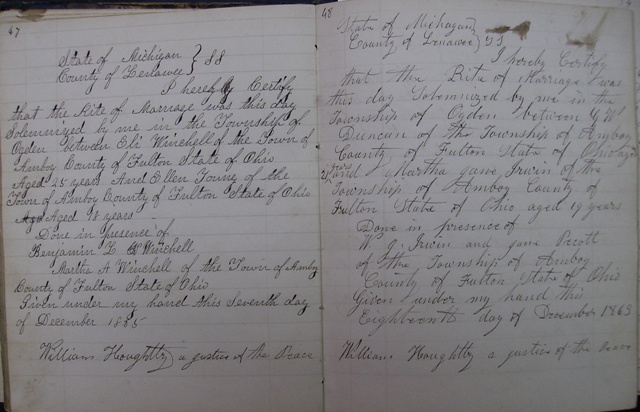 47
State of Michigan } SS
County of Lenawee
I hereby Certify
that the Rite of Marriage was this day
Solemnized by me in the Township of
Ogden between Eli Winchell of the Town of
Amboy County of Fulton State of Ohio
Aged 25 years And Ellen Young of the
Town of Amboy County of Fulton State of Ohio
Aged 18 years
Done in presence of
Benjamin L Winchell
Martha A Winchell of the Town of Amboy
County of Fulton State of Ohio
Given under my hand this Seventh day
of December 1865
William Houghtby a justice of the Peace
48
State of Michigan }
County of Lenawee } SS
I hereby Certify
that the Rite of Marriage was
this day Solemnized by me in the
Township of Ogden between G W
Duncan of the Township of Amboy
County of Fulton State of Ohio
and Martha Jane Irwin of the
Township of Amboy County of
Fulton State of Ohio aged 19 years
Done in presence of
W J Irwin and Jane
of the Township of Amboy
County of Fulton State of Ohio
Given under my hand this
Eighteenth day of December 1863
William Houghtby a justice of the Peace